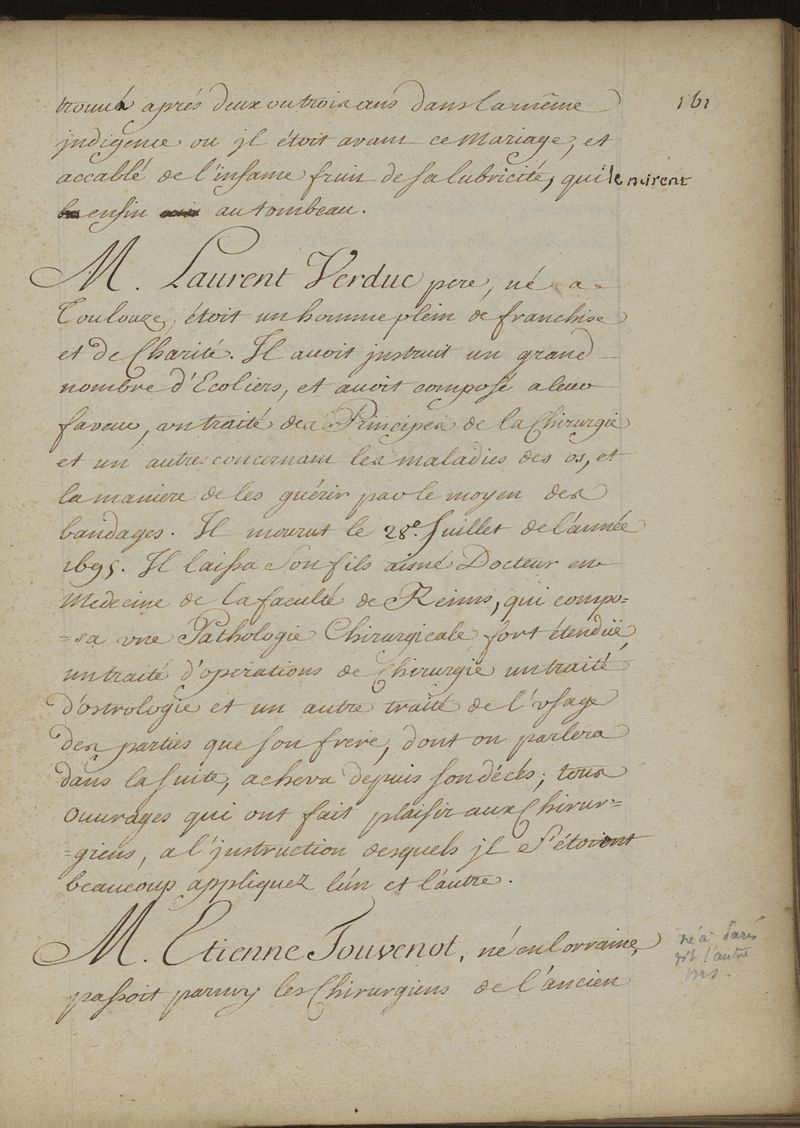 161
trouvé aprés deux ou trois ans dans la même
jndigence ou jl étoit avant ce Mariage, et
accablé de l'infame fruit de sa lubricité, qui le mirent
enfin au tombeau.
M. Laurent Verduc pere, né a
Toulouze, étoit un homme plein de franchise
et de Charité. Il avoit jnstruit un grand
nombre d'Ecoliers, et avoit composé a leur
faveur, un traité des Principes de la Chirurgie
et un autre concernant les maladies des os, et
la maniere de les guérir par le moyen des
bandages. Il mourut le 28e. Juillet de l'année
1695. Il laissa son fils aisné Docteur en
Medecine de la faculté de Reims, qui compo=
=sa vne Pathologie Chirurgicale fort étenduë,
un traité d'operations de Chirurgie un traité
d'osteologie et un autre traité de l'vsage
des parties que son frere, dont on parlera
dans la suite, acheva depuis son décés; tous
ouvrages qui ont fait plaisir aux Chirur=
=giens, a l'jnstruction desquels jl s'étoient
beaucoup appliquez l'ún et l'autre.
M. Etienne Jouvenot, né en Lorraine,
passoit parmy les Chirurgiens de l'ancien
né à Paris
dit l'autre